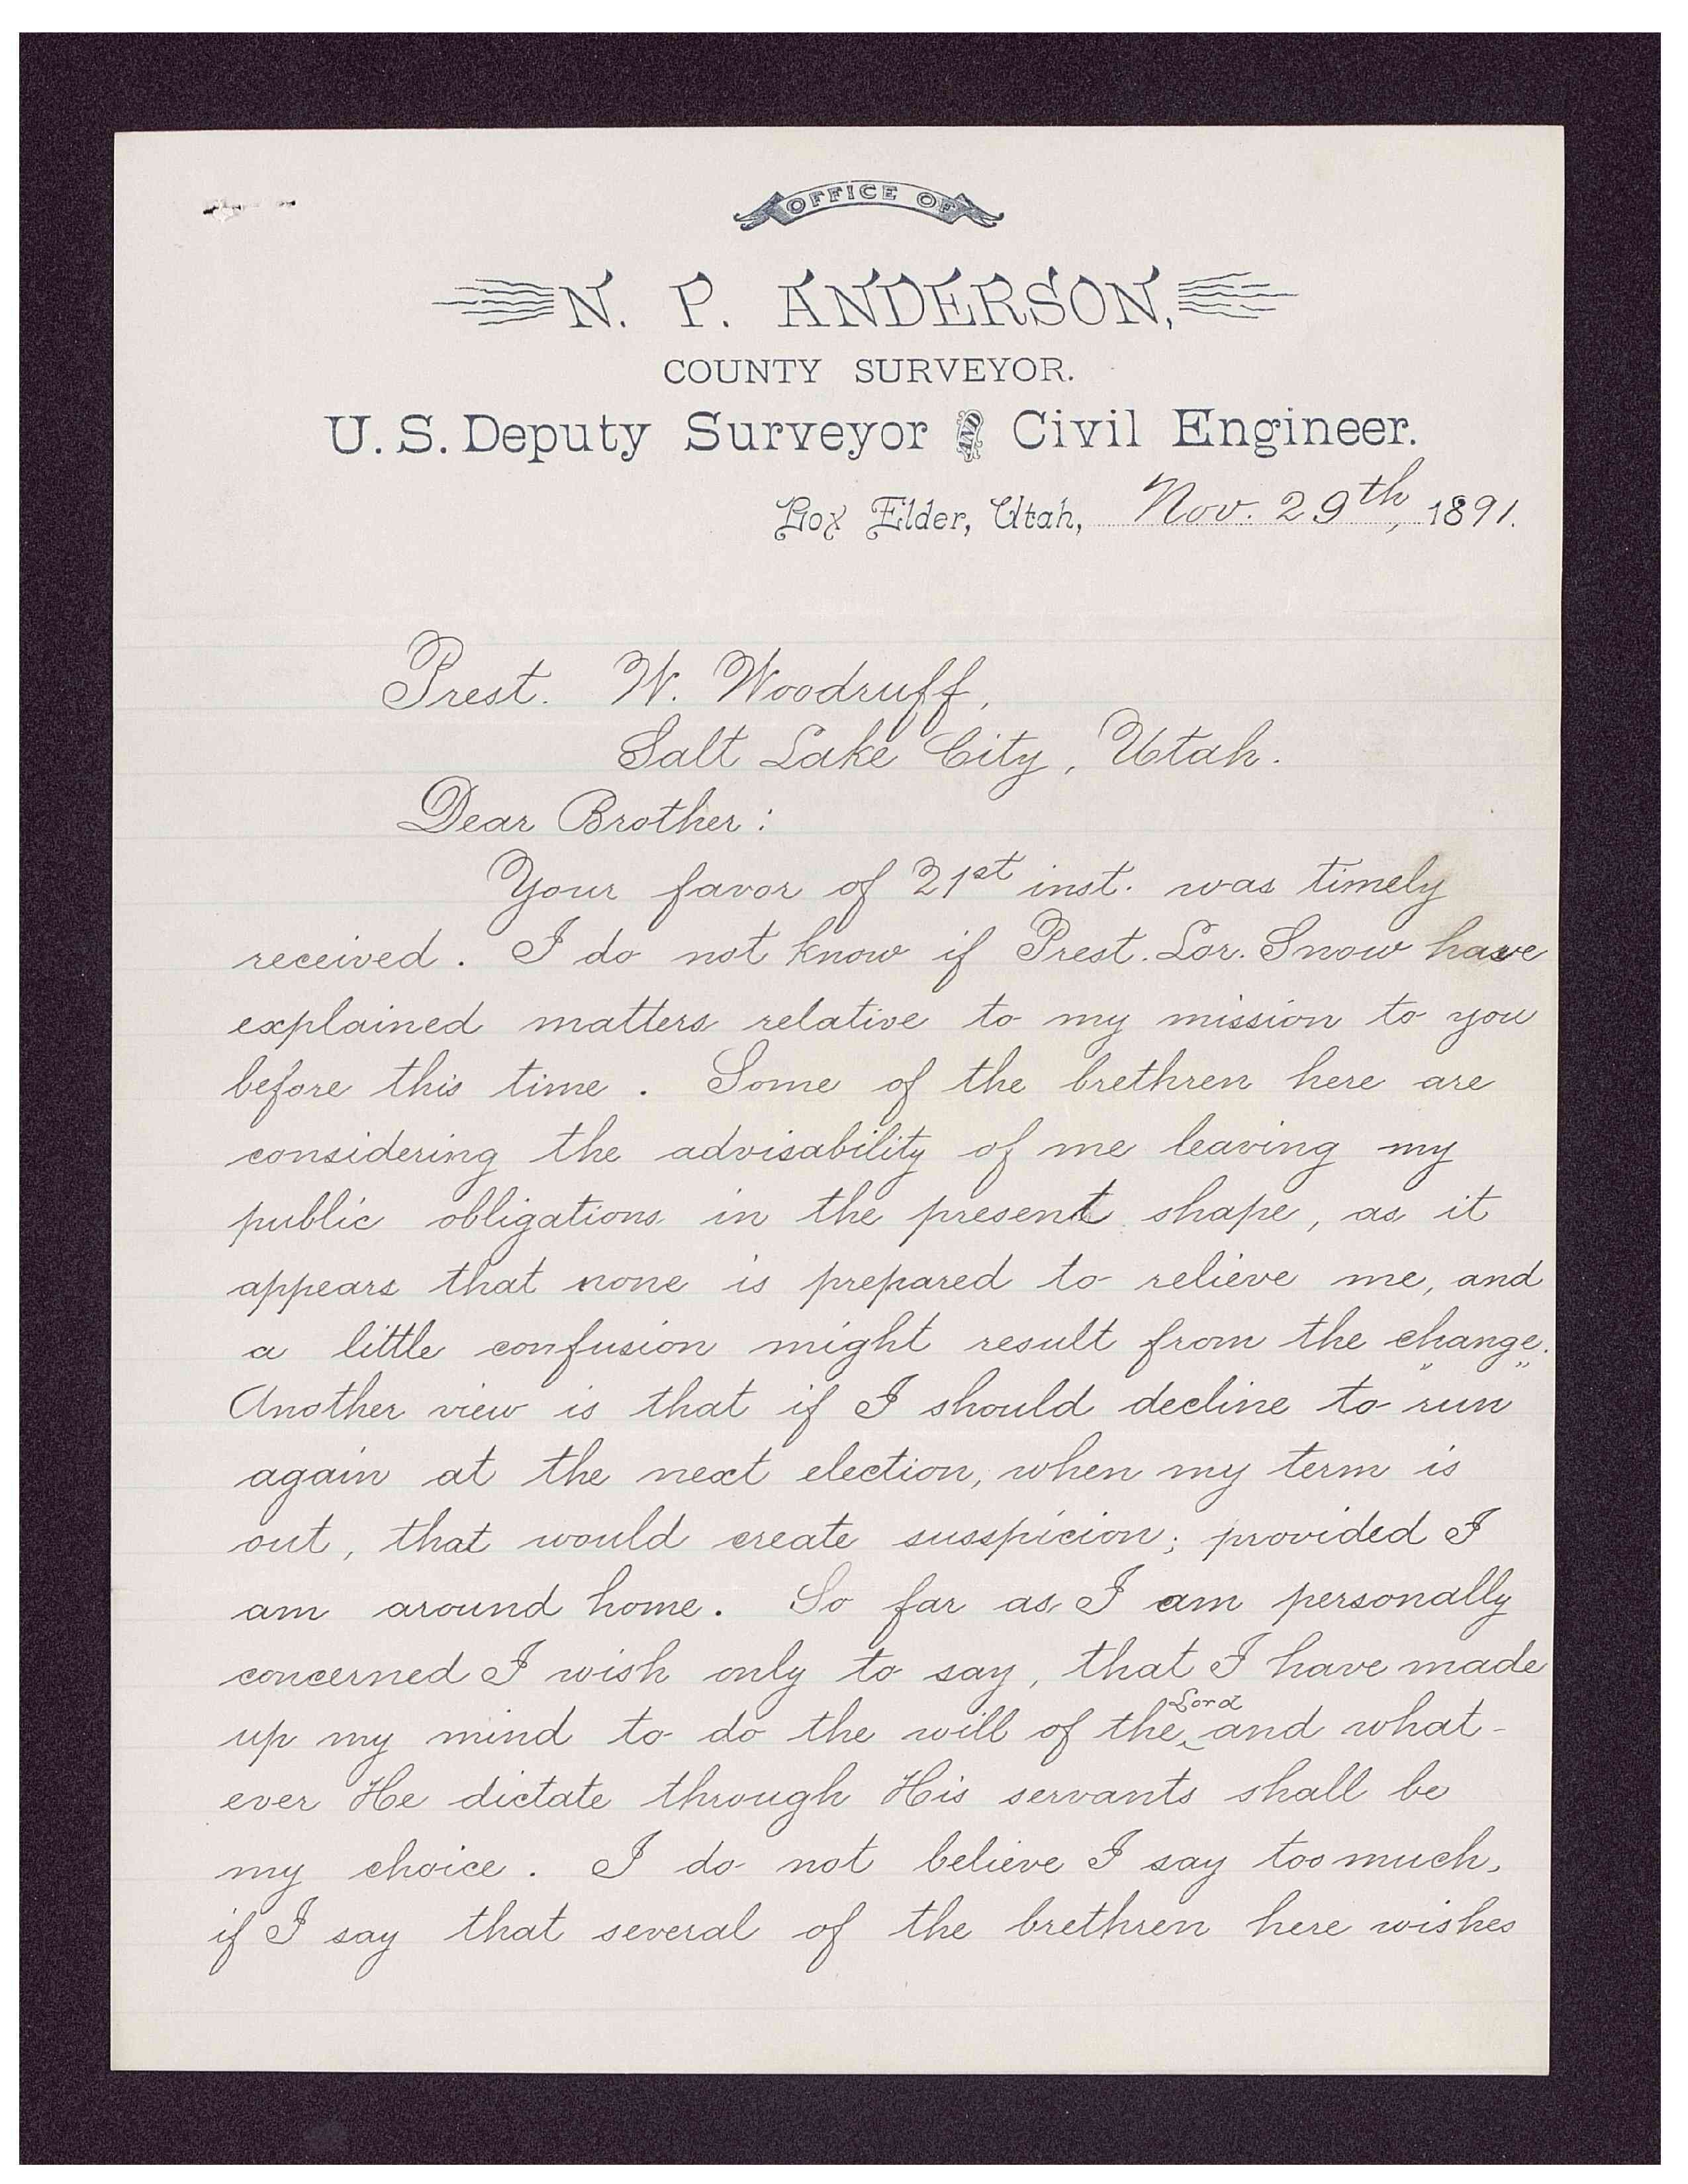 OFFICE OF
N. P. ANDERSON,
COUNTY SURVEYOR.
U.S. Deputy Surveyor AND Civil Engineer.
Box Elder, Utah, Nov. 29th, 1891.
Prest. W. Woodruff,
Salt Lake City, Utah.
Dear Brother:
Your favor of 21st inst. was timely
received. I do not know if Prest. Lor. Snow have
explained matters relative to my mission to you
before this time. Some of the brethren here are
considering the advisability of me leaving my
public obligations in the present shape, as it
appears that none is prepared to relieve me, and
a little confusion might result from the change.
Another view is that if I should decline to "run"
again at the next election, when my term is
out, that would create susspicion; provided I
am around home. So far as I am personally
concerned I wish only to say, that I have made
up my mind to do the will of the Lord and what-
ever He dictate through His servants shall be
my choice. I do not believe I say too much,
if I say that several of the brethren here wishes